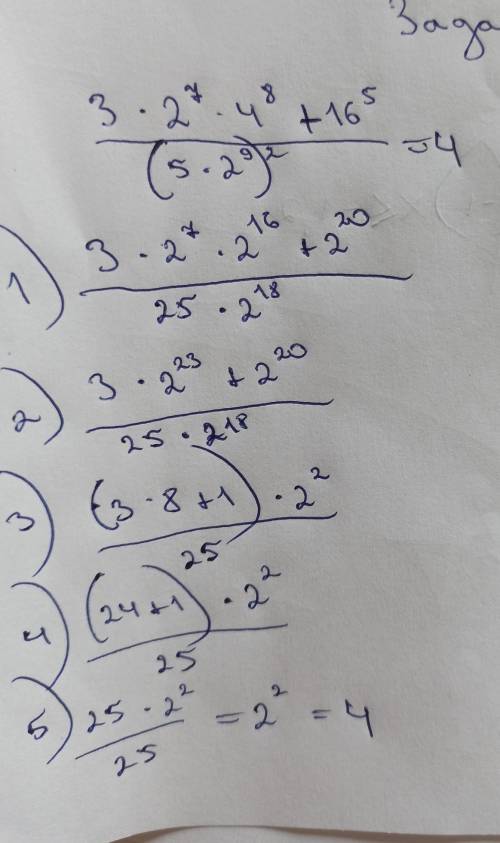 Зада
3 · 2⁷ · 4⁸ + 16⁵
(5 · 2⁹)² = 4
1) 3 · 2⁷ · 2¹⁶ + 2²⁰
25 · 2¹⁸
2) 3 · 2²³ + 2²⁰
25 · 2¹⁸
3) (3 · 8 + 1) · 2²
25
4) (24 + 1) · 2²
25
5) 25 · 2² = 2² = 4
25